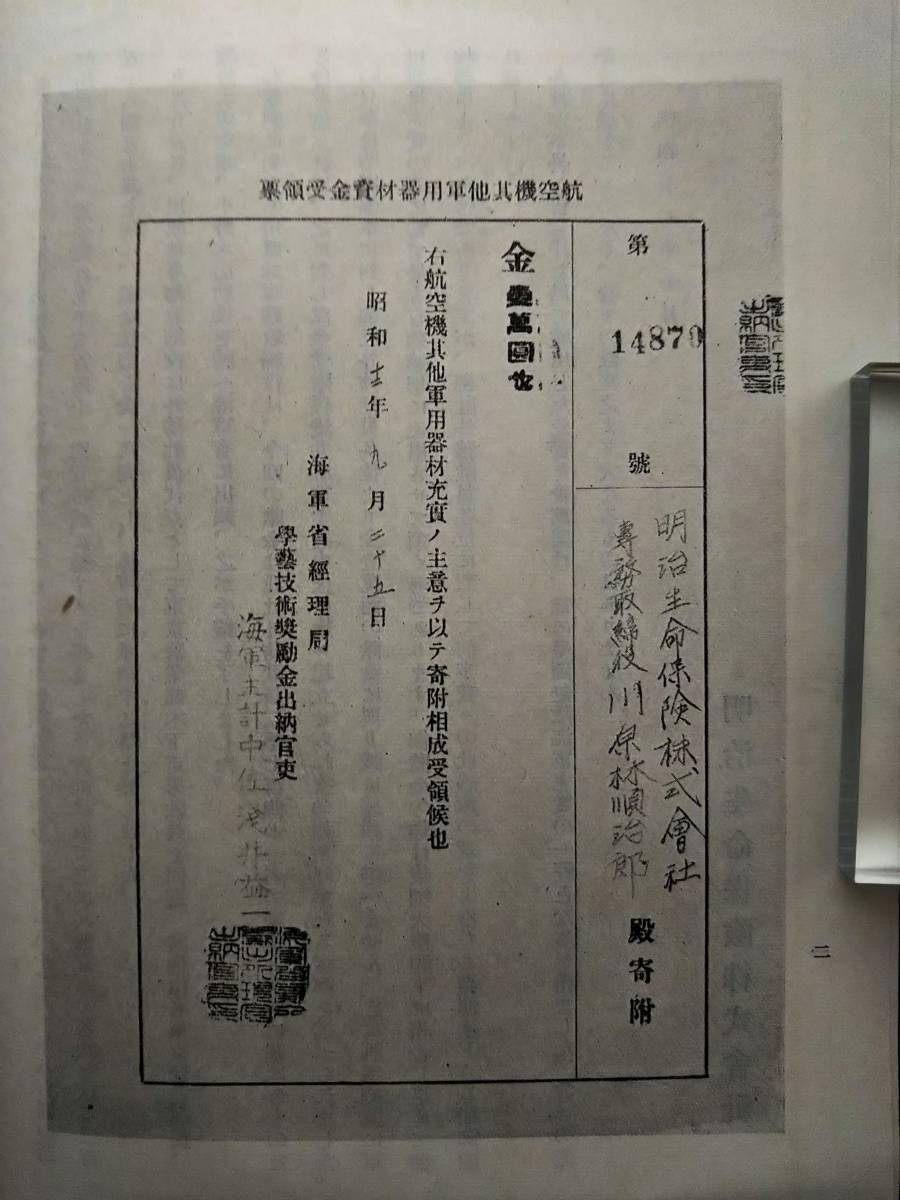 航空機其他軍用器材資金受領票
第14870號
明治生命保険株式會社
專務取締役川原林順治郎殿寄附
金壹萬圓也
右航空機其他軍用器材充實ノ主意ヲ以テ寄附相成受領候也
昭和十二年九月二十五日
海軍省經理局
學藝技術獎勵金出納官吏
海軍主計中佐淺井一
二